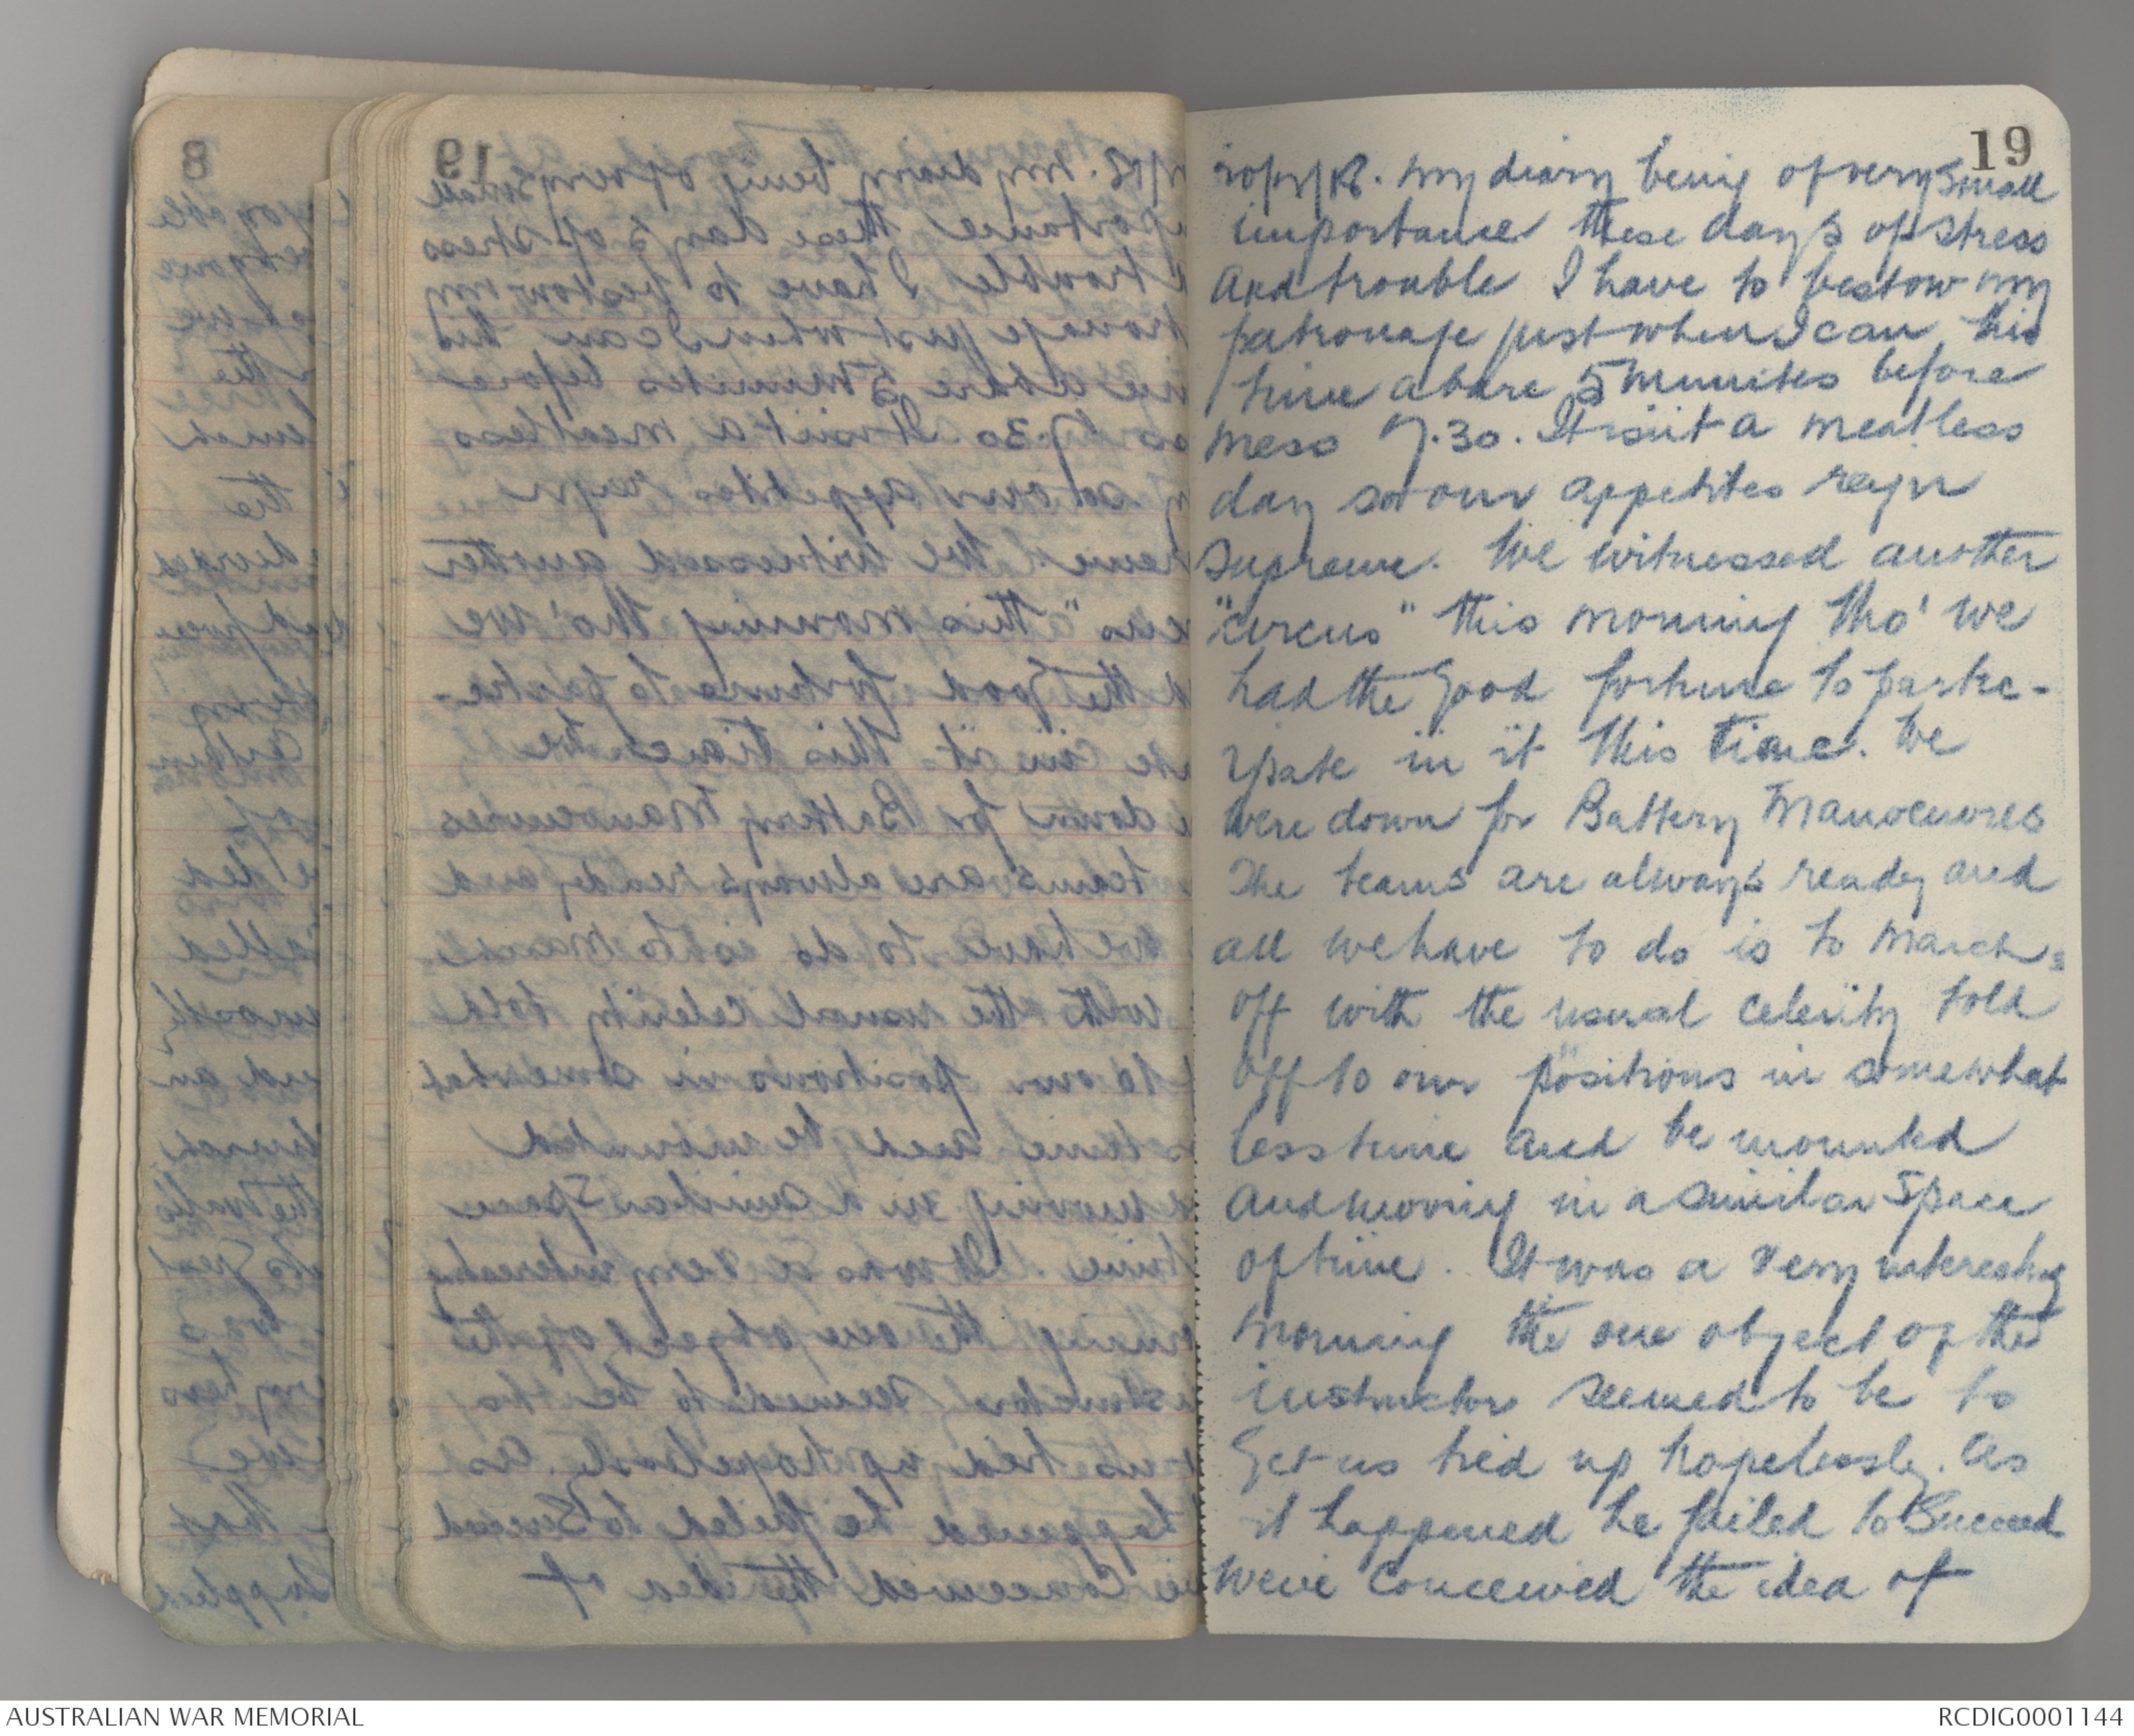 19
My diary being of very small
importance these days of stress
and trouble I have to bestow my
patronage just when I can this
time a bare 5 minutes before
mess 7.30. It isn't a meatless
day so our appetites reign
supreme. We witnessed another
"circus" this morning tho' we
had the good fortune to partic-
ipate in it this time. We
were down for Battery Manoeuvres
The teams are always ready and
all we have to do is to march
off with the usual celerity told
off to our positions in somewhat
less time and be mounted
and moving in a similar space
of time. It was a very interesting
morning the one object of the
instructor seemed to be to
get us tied up hopelessly. As
it happened he failed to succeed
We've conceived the idea of
AUSTRALIAN WAR MEMORIAL
RCDIG0001144